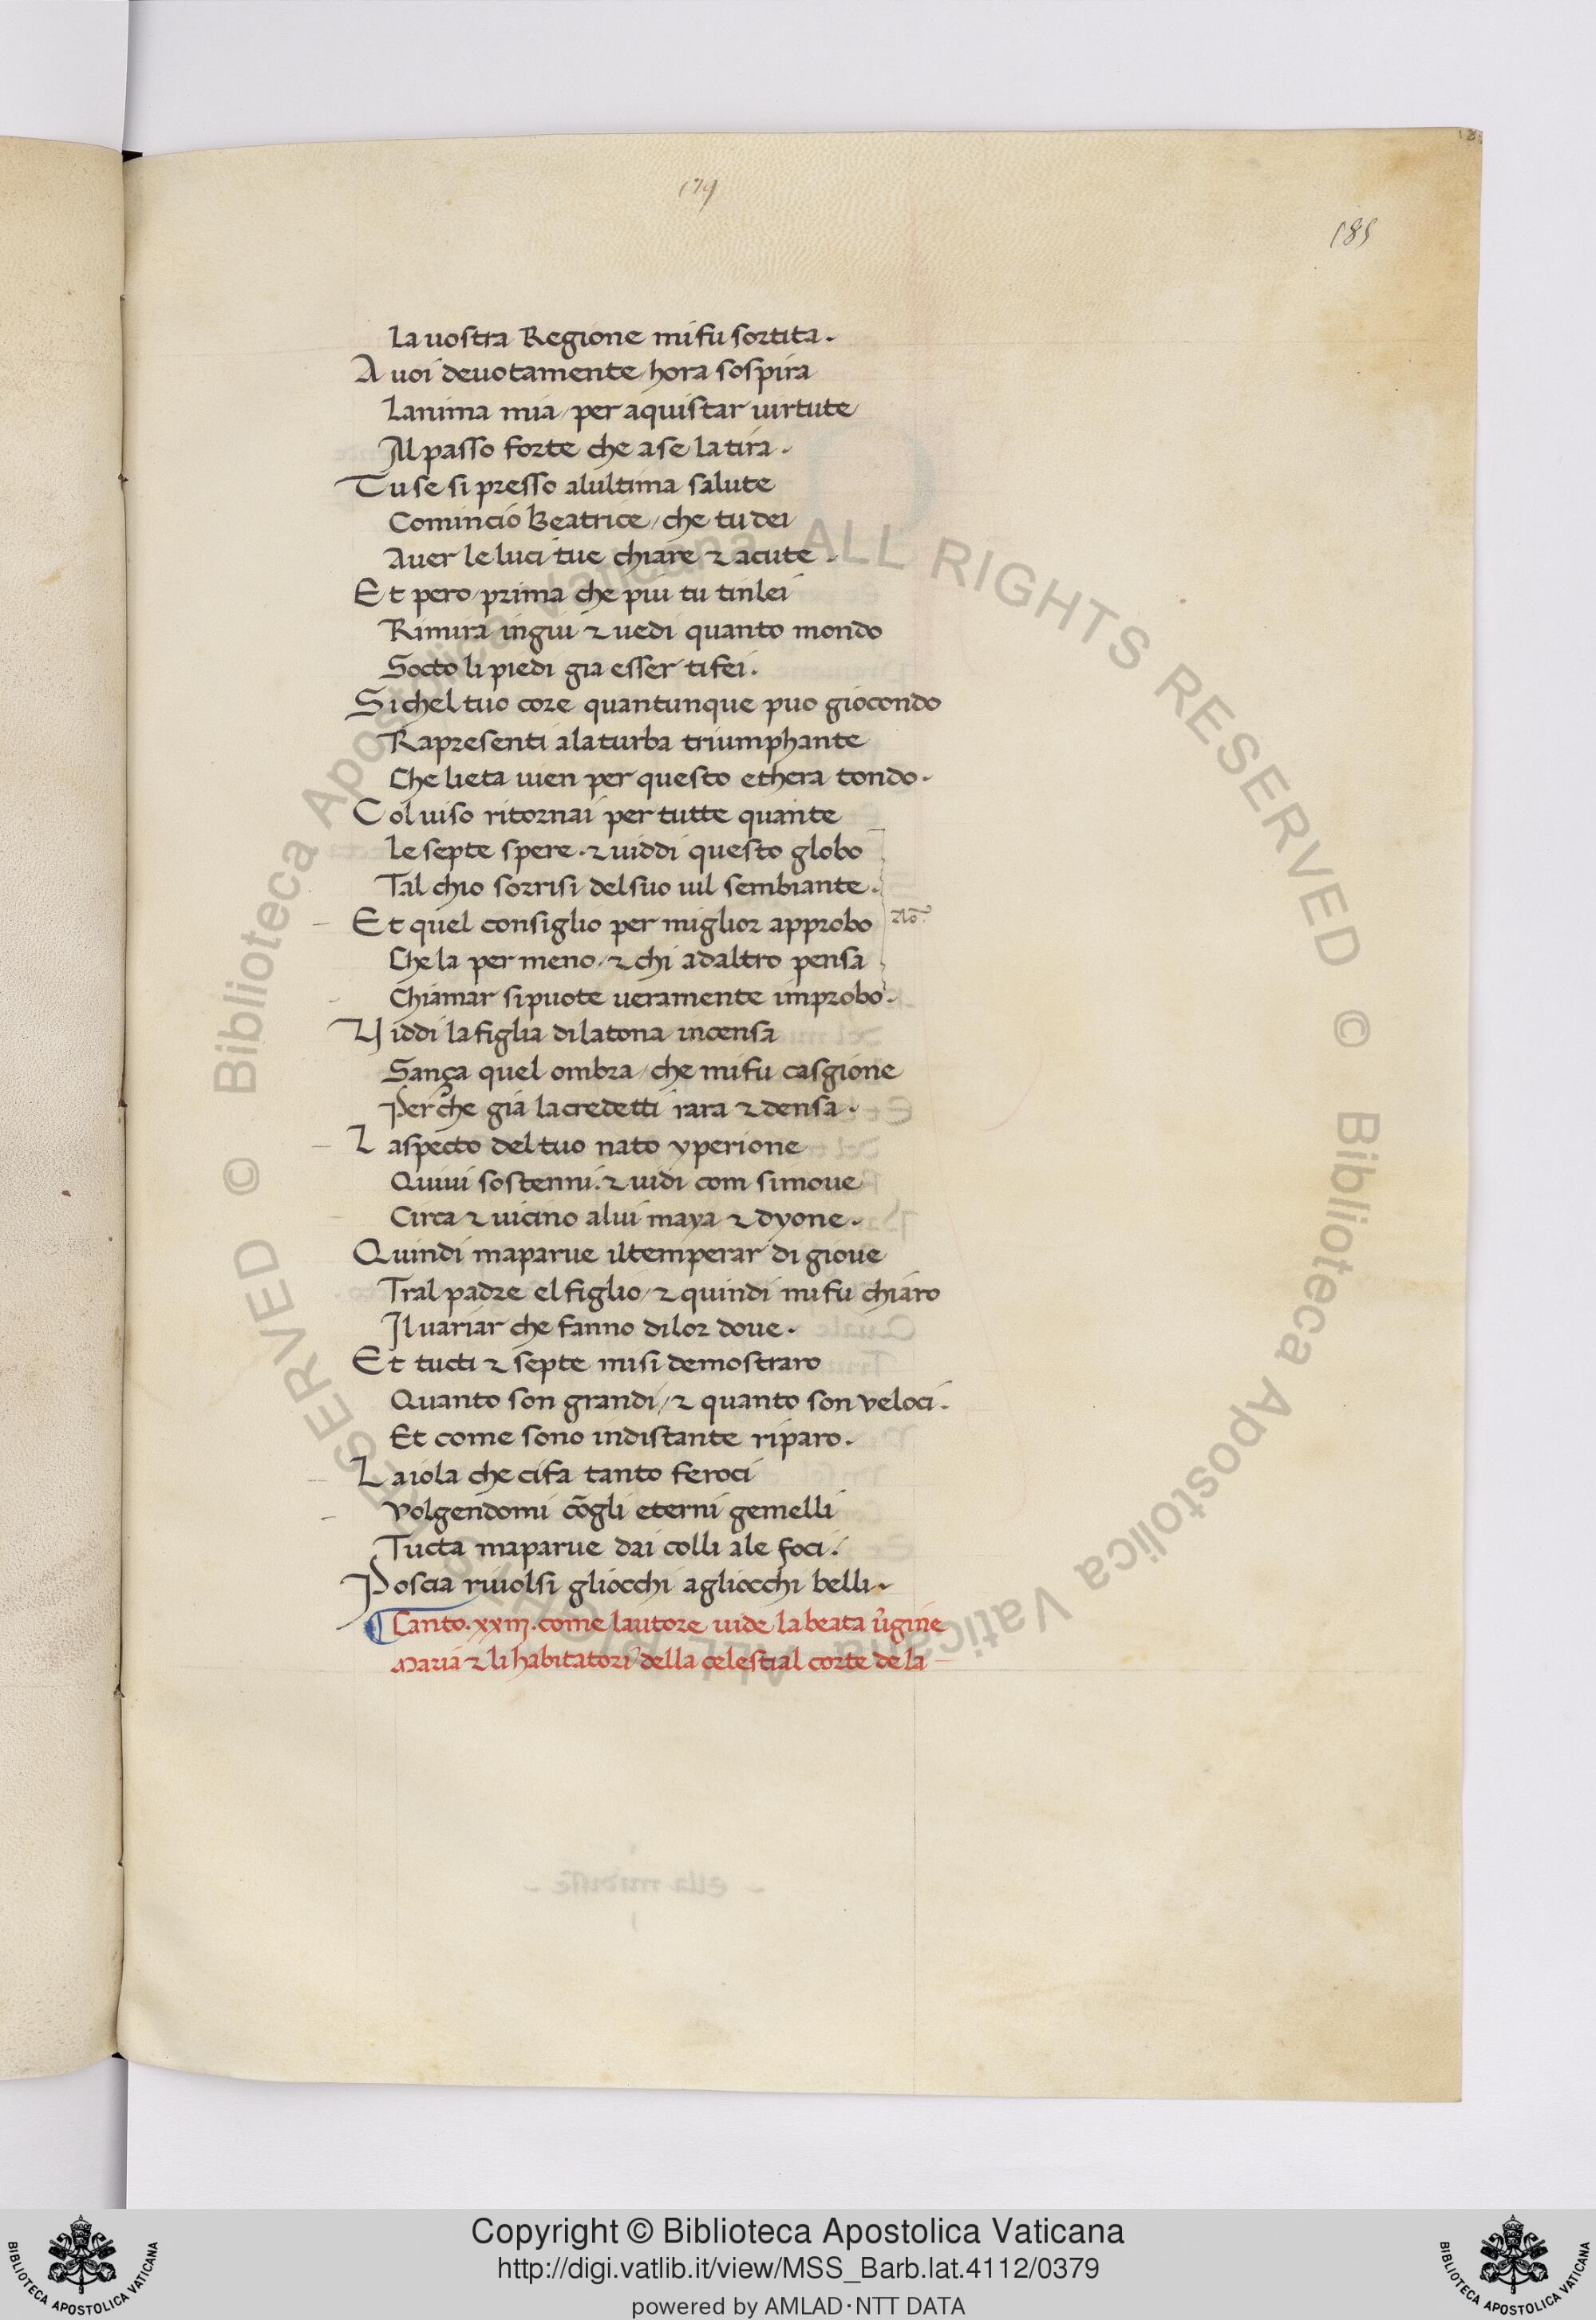 179
185
La uostra Regione mi fu sortita.
A uoi deuotamente/ hora sospira
Lanima mia/ per aquistar uirtute
Al passo forte che a se la tira.
Tu se si presso alultima salute
Comincio Beatrice/ che tu dei
Auer le luci tue chiare & acute.
Et pero/ prima che piu tu tinlei
Rimira ingiu & uedi quanto mondo
Socto li piedi gia esser ti fei.
Si chel tuo core quantunque puo giocondo
Rapresenti ala turba triumphante
Che lieta uien per questo ethera tondo.
Col uiso ritornai per tutte quante
Le septe spere. & uiddi questo globo
Tal chio sorrisi del suo uil sembiante.
Et quel consiglio per miglior approbo
No
Che la per meno/ & chi adaltro pensa
Chiamar si puote ueramente improbo.
Uiddi la figlia di latona incensa
Sança quel ombra/ che mi fu casgione
Perche gia la credetti rara & densa.
Laspecto del tuo nato yperione
Quiui sostenni. & uidi com si moue
Circa & uicino a lui maya & dyone.
Quindi maparue il temperar di gioue
Tral padre el figlio/ & quindi mi fu chiaro
Il uariar che fanno di lor doue.
Et tucti & septe mi si demostraro
Quanto son grandi/ & quanto son veloci.
Et come sono indistante riparo.
Laiola che ci fa tanto feroci
Volgendomi cõgli eterni gemelli
Tucta maparue dai colli ale foci.
Poscia riuolsi gliocchi agliocchi belli.
Canto. xxiij. come lautore uide la beata u̓gine
Maria & li habitatori della celestial corte de la
Copyright © Biblioteca Apostolica Vaticana
http://digi.vatlib.it/view/MSS_Barb.lat.4112/0379
powered by AMLAD·NTT DATA
BIBLIOTECA APOSTOLICA VATICANA
BIBLIOTECA APOSTOLICA VATICANA
© Biblioteca Apostolica Vaticana ALL RIGHTS RESERVED
© Biblioteca Apostolica Vaticana ALL RIGHTS RESERVED